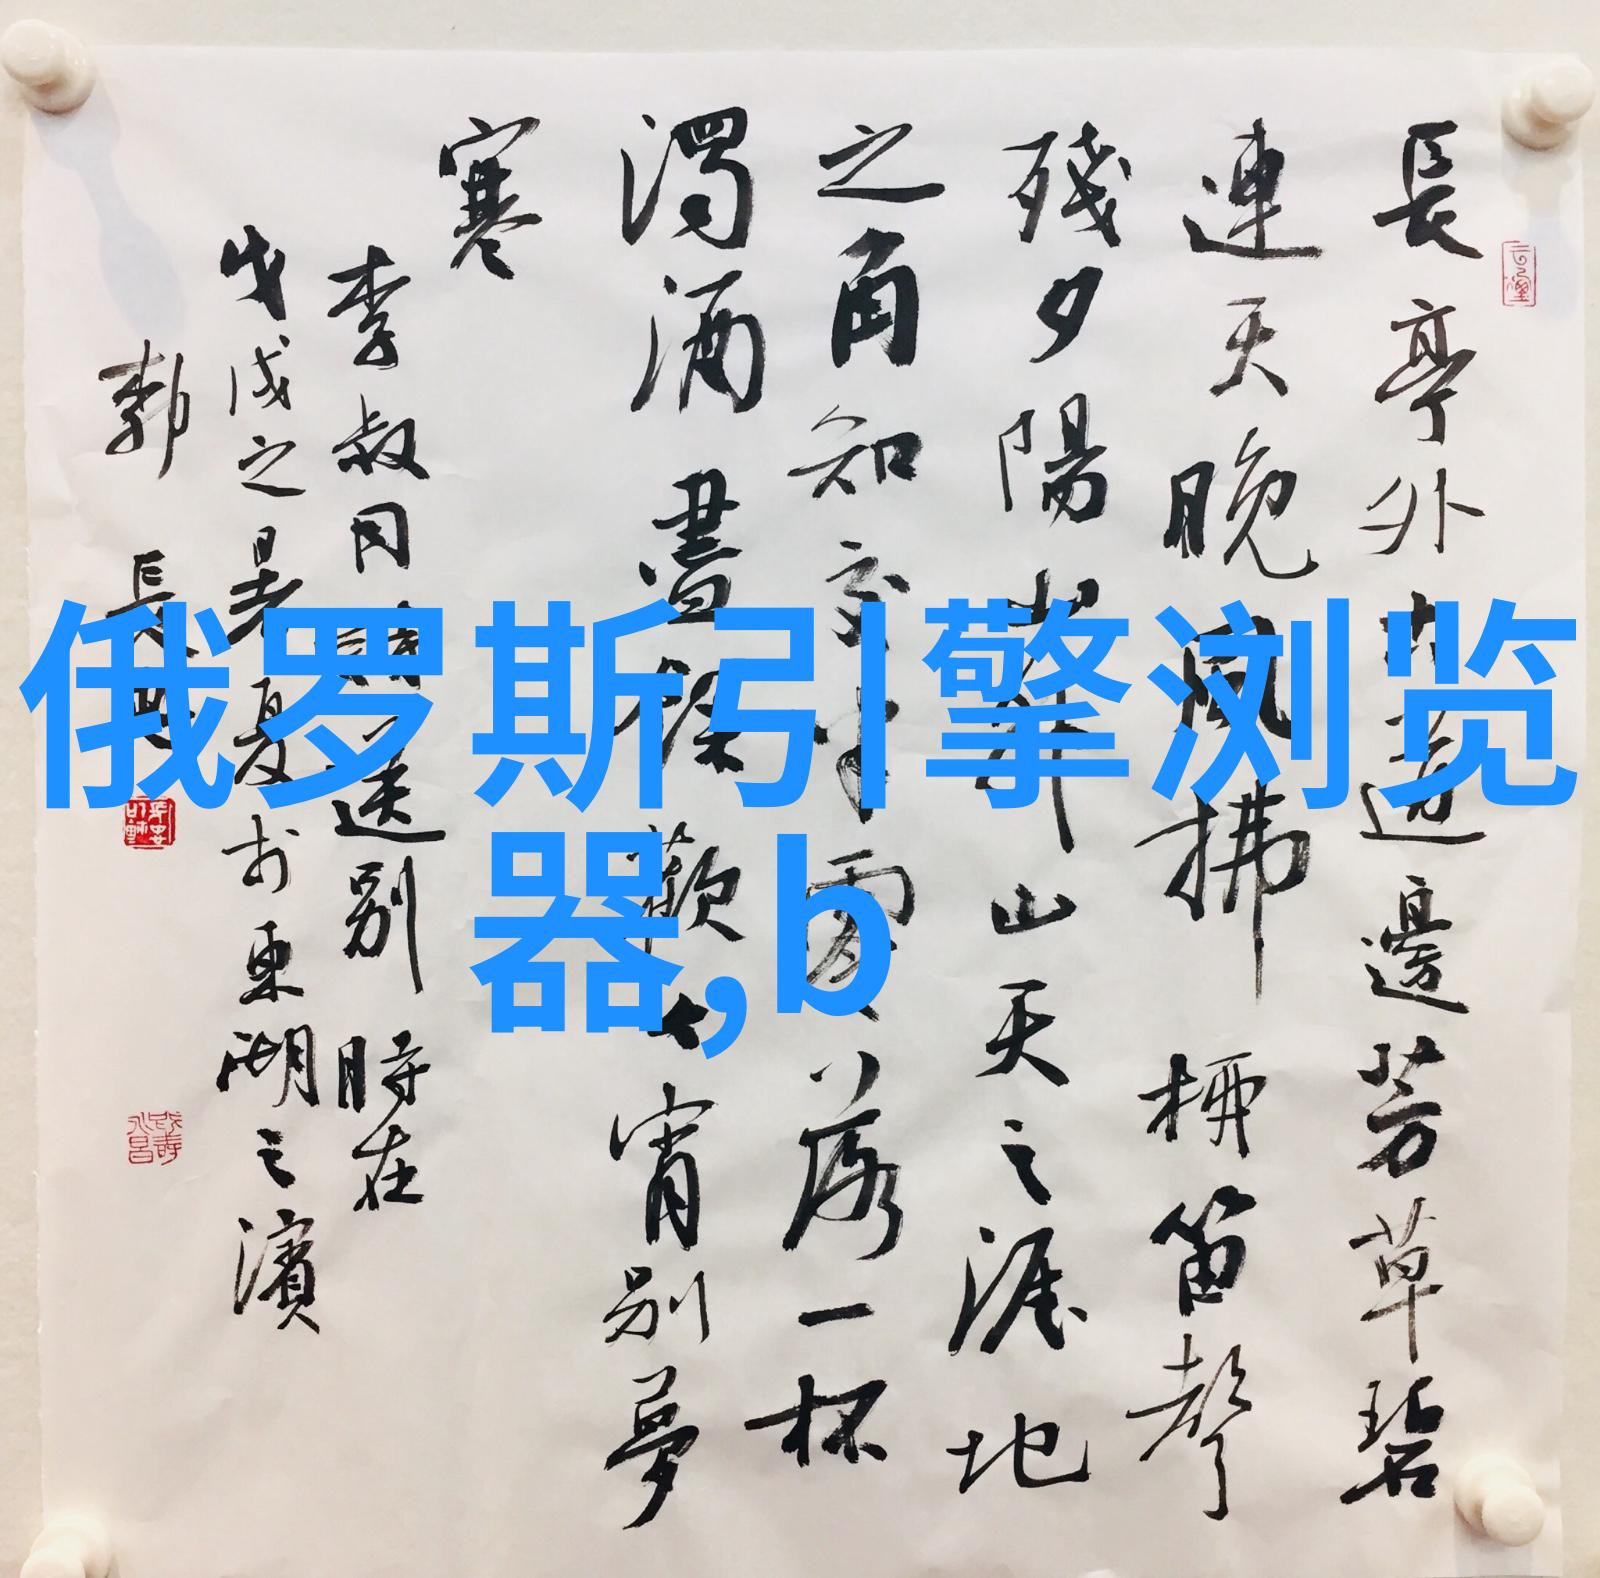 長亭外古道邊芳草碧
連天晚風拂柳笛聲
殘夕陽山外山天之涯地
之角知交半零落一杯
濁酒盡餘歡今宵別夢
寒
李叔同詩送別 時在
戊戌之暑夏於東湖之濱
郭 長
俄罗斯引擎浏览
器,b